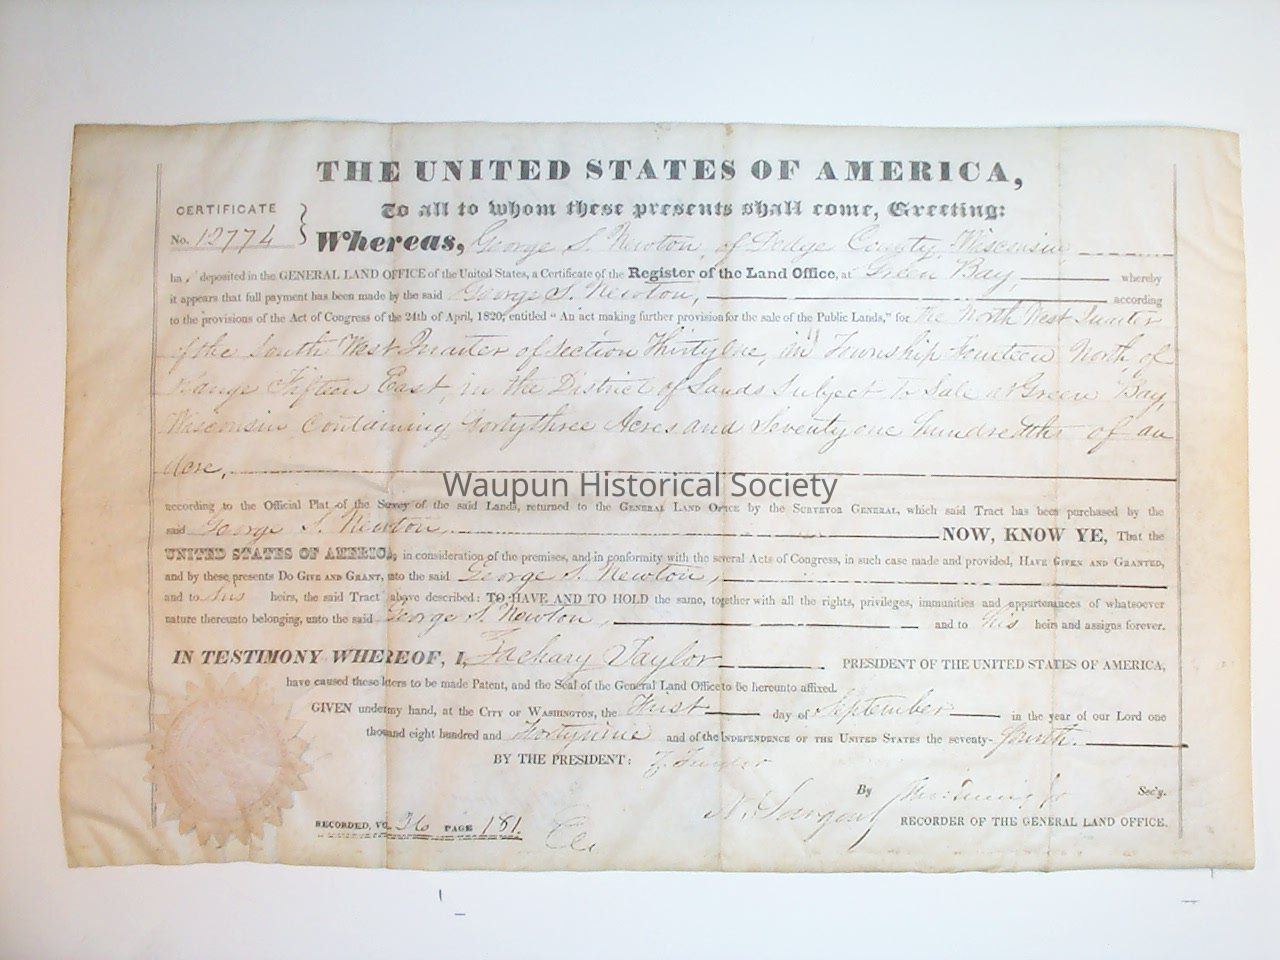 THE UNITED STATES OF AMERICA,
To all to whom these presents shall come, Greeting:
CERTIFICATE
No. 12774
Whereas, George S. Newton, of Dodge County, Wisconsin,
ha deposited in the GENERAL LAND OFFICE of the United States, a Certificate of the Register of the Land Office, at Green Bay, whereby
it appears that full payment has been made by the said George S. Newton, according
to the provisions of the Act of Congress of the 24th of April, 1820, entitled "An act making further provision for the sale of the Public Lands," for the North West Quarter
of the South West Quarter of Section Thirty One, in Township Fourteen North, of
Range Fifteen East, in the District of Lands Subject to Sale at Green Bay,
Wisconsin Containing Forty three Acres and Seventy one hundredths of an
Acre,
Waupun Historical Society
according to the Official Plat of the Survey of the said Lands, returned to the GENERAL LAND OFFICE by the SURVEYOR GENERAL, which said Tract has been purchased by the
said George S. Newton, NOW, KNOW YE, That the
UNITED STATES OF AMERICA, in consideration of the premises, and in conformity with the several Acts of Congress, in such case made and provided, HAVE GIVEN AND GRANTED,
and by these presents DO GIVE AND GRANT, unto the said George S. Newton,
and to his heirs, the said Tract above described: TO HAVE AND TO HOLD the same, together with all the rights, privileges, immunities and appurtenances of whatsoever
nature thereunto belonging, unto the said George S. Newton, and to his heirs and assigns forever.
IN TESTIMONY WHEREOF, I, Zachary Taylor PRESIDENT OF THE UNITED STATES OF AMERICA,
have caused these letters to be made Patent, and the Seal of the General Land Office to be hereunto affixed.
GIVEN under my hand, at the CITY OF WASHINGTON, the First day of September in the year of our Lord one
thousand eight hundred and Forty nine and of the INDEPENDENCE OF THE UNITED STATES the seventy-fourth.
BY THE PRESIDENT: Z. Taylor
By Sec'y.
N. Sargent RECORDER OF THE GENERAL LAND OFFICE.
RECORDED, VOL. 36 PAGE 181.